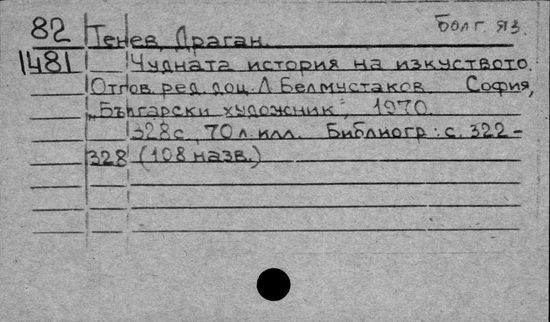 82 Тенев, Драган. Болг яз.
1481 Чудната история на изкуството.
Отгов. ред. доц. Л Белмустаков София,
„Български художник", 1970.
328 с, 70 л. илл. Библиогр: с. 322-
328 (108 назв.)